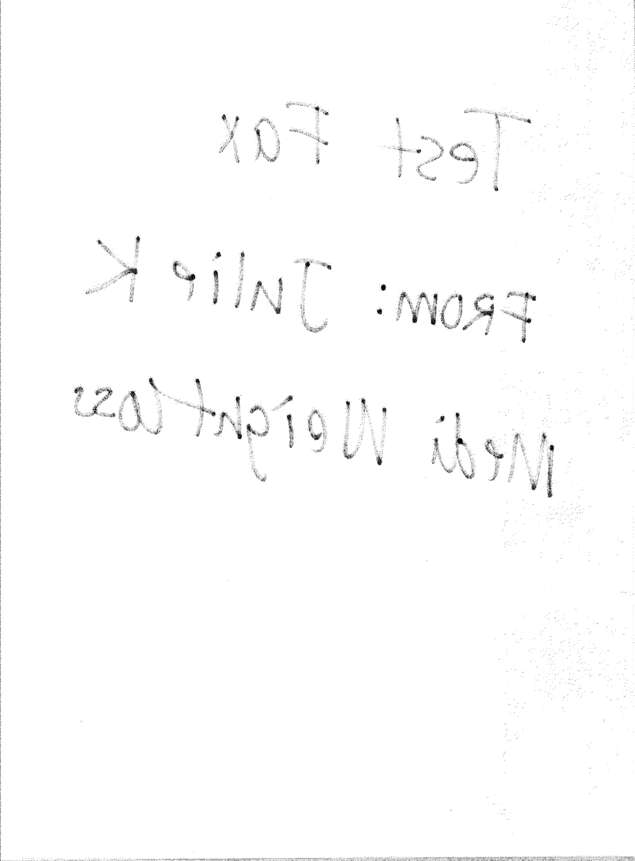 Test Fax
FROM: Julie K
Medi Weightloss